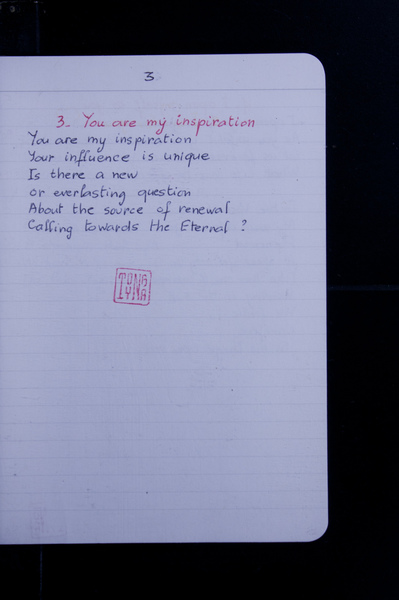 3
3_ You are my inspiration
You are my inspiration
Your influence is unique
Is there a new
or everlasting question
About the source of renewal
Calling towards the Eternal ?
TONG